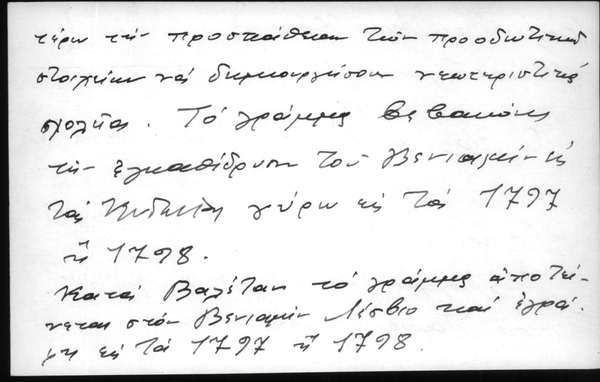 τέρω τὴν προσπάθειαν τῶν προοδευτικῶν
στοιχείων νά δημιουργήσουν νεωτεριστικές
σχολές. Τό γράμμα βεβαιώνει
τὴν ἐγκαθίδρυση τοῦ Βενιαμίν εἰς
τάς Κυδωνίας γύρω εἰς τά 1797
ἤ 1798.
Κατά Βαλέταν τό γράμμα ἀποτεί-
νεται στόν Βενιαμίν Λέσβιο καί ἐγρά-
φη εἰς τά 1797 ἤ 1798.